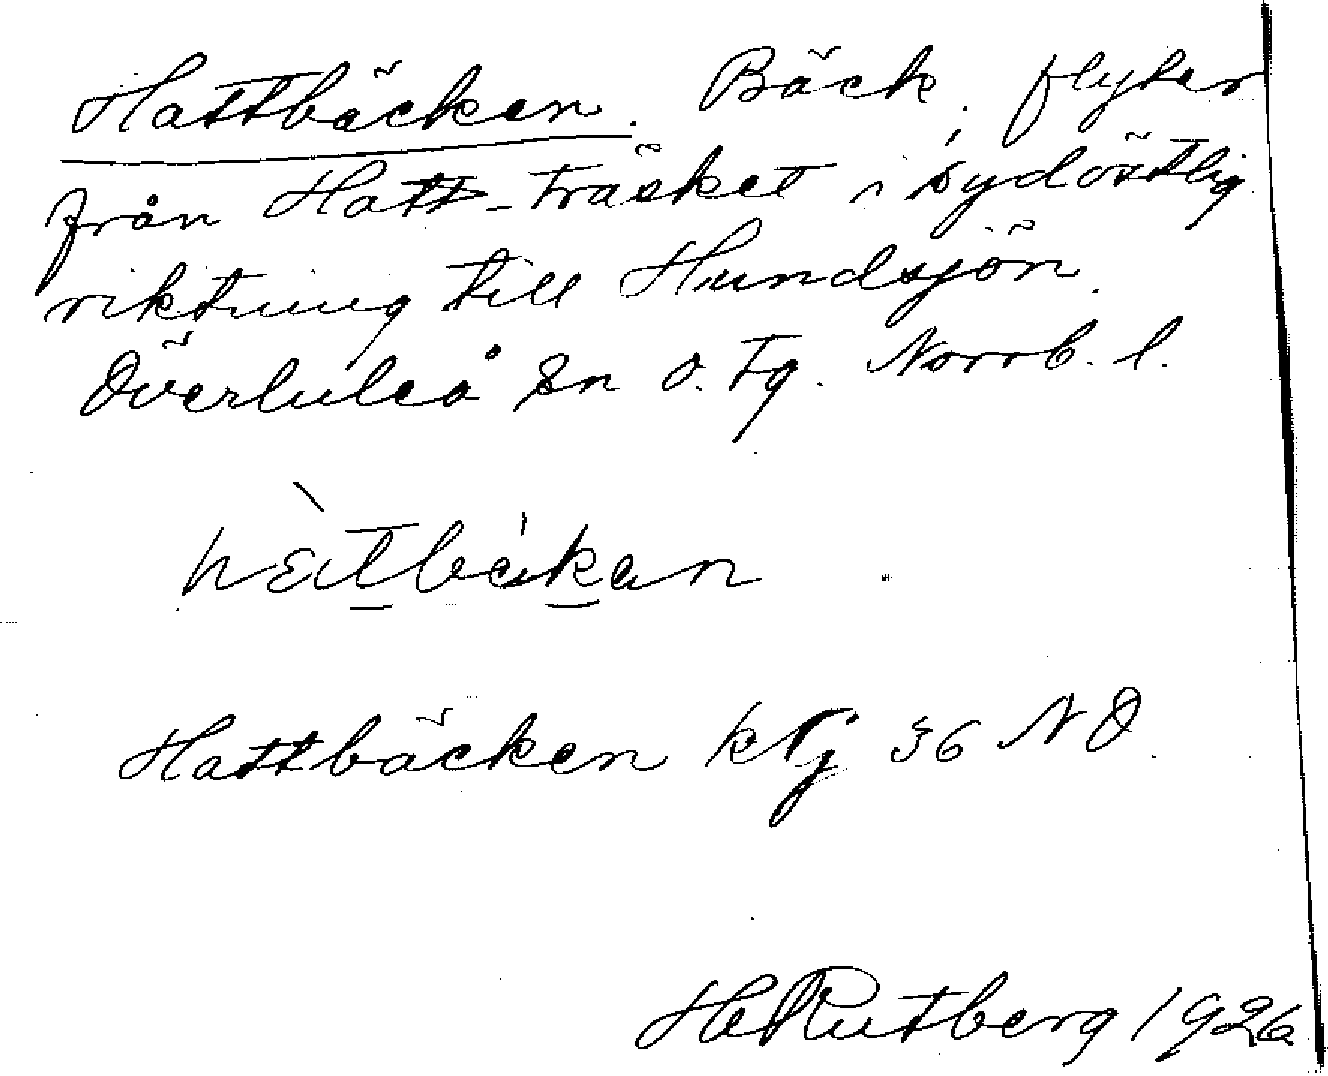 Hattbäcken. Bäck, flyter
från Hatt-träsket i sydöstlig
riktning till Hundsjön.
Överluleå sn ö. tg. Norrb. l.
Hattbäcken ktj 36 NO
H Rutberg 1926